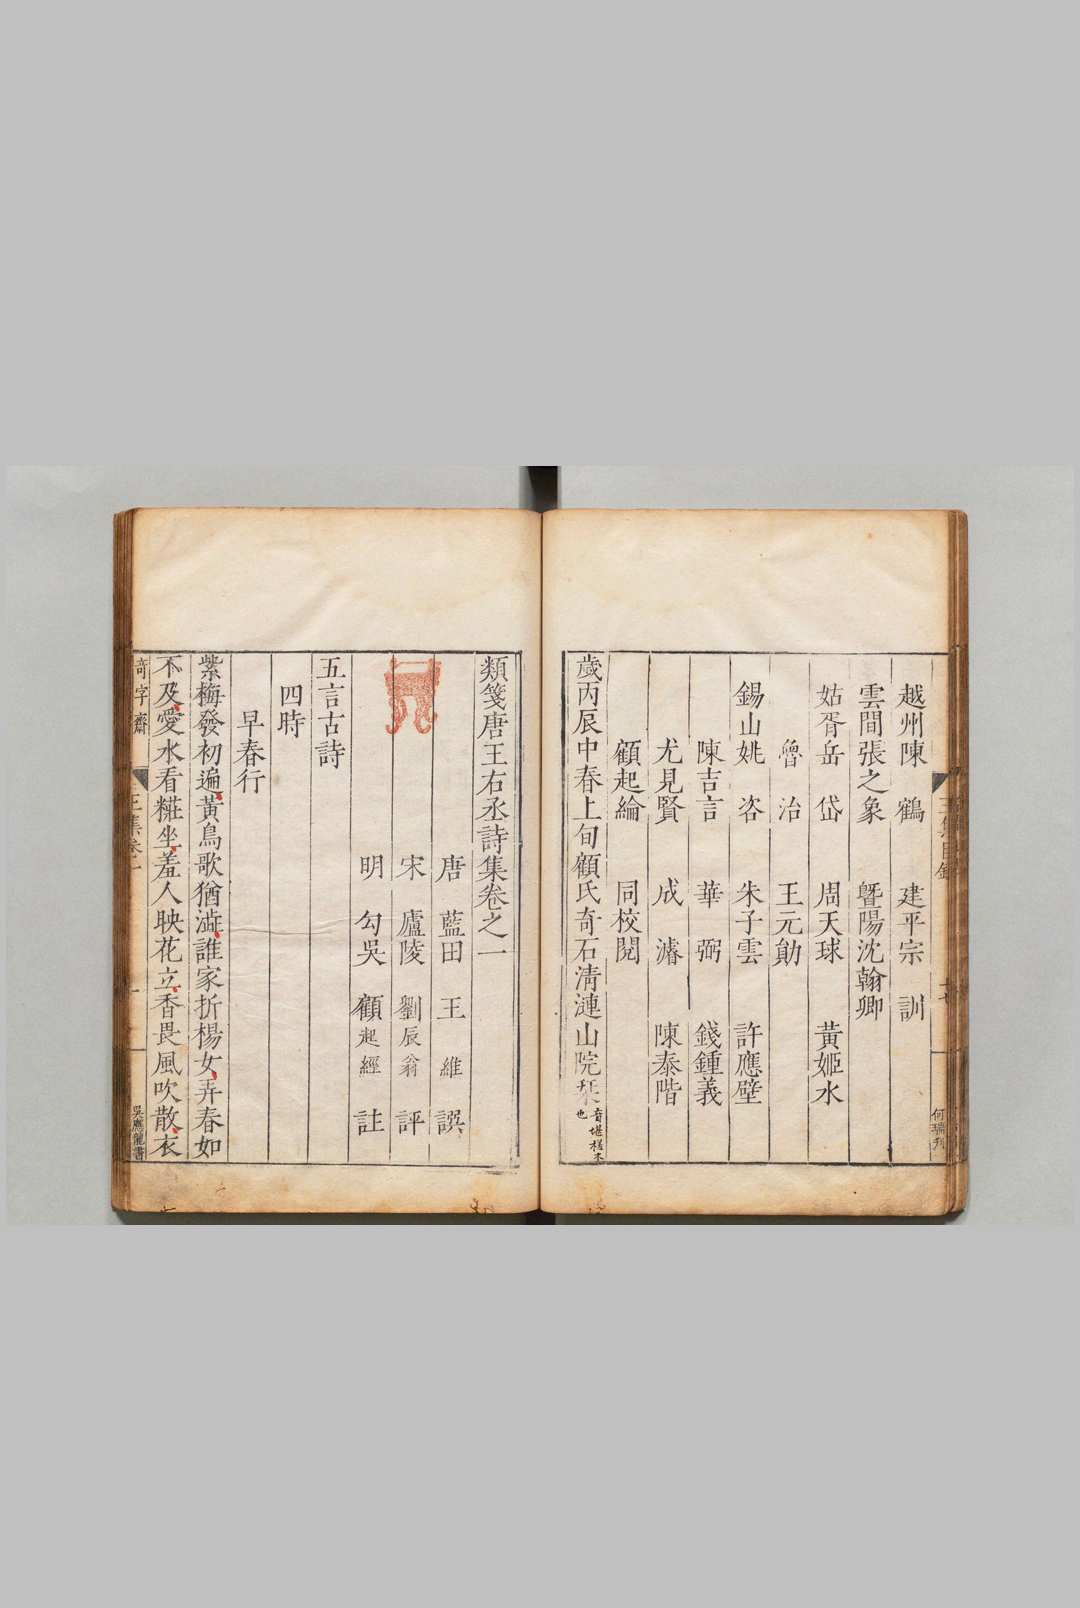 越州陳　鶴　　建平宗　訓
雲間張之象　　曁陽沈翰卿
姑胥岳　岱　　周天球　　黃姬水
魯　治　　王元勛
錫山姚　咨　　朱子雲　　許應壁
陳吉言　　華　弼　　錢鍾義
尤見賢　　成　濬　　陳泰階
顧起綸　　同校閱
歲丙辰中春上旬顧氏奇石清漣山院栞音堪槎木也
類箋唐王右丞詩集卷之一
唐　藍田　王　維　譔
宋　廬陵　劉辰翁　評
明　勾吳　顧起經　註
五言古詩
四時
早春行
紫梅發初遍黃鳥歌猶澁誰家折楊女弄春如
不及愛水看糚坐羞人映花立香畏風吹散衣
奇字齋
王集卷一
吳應龍書